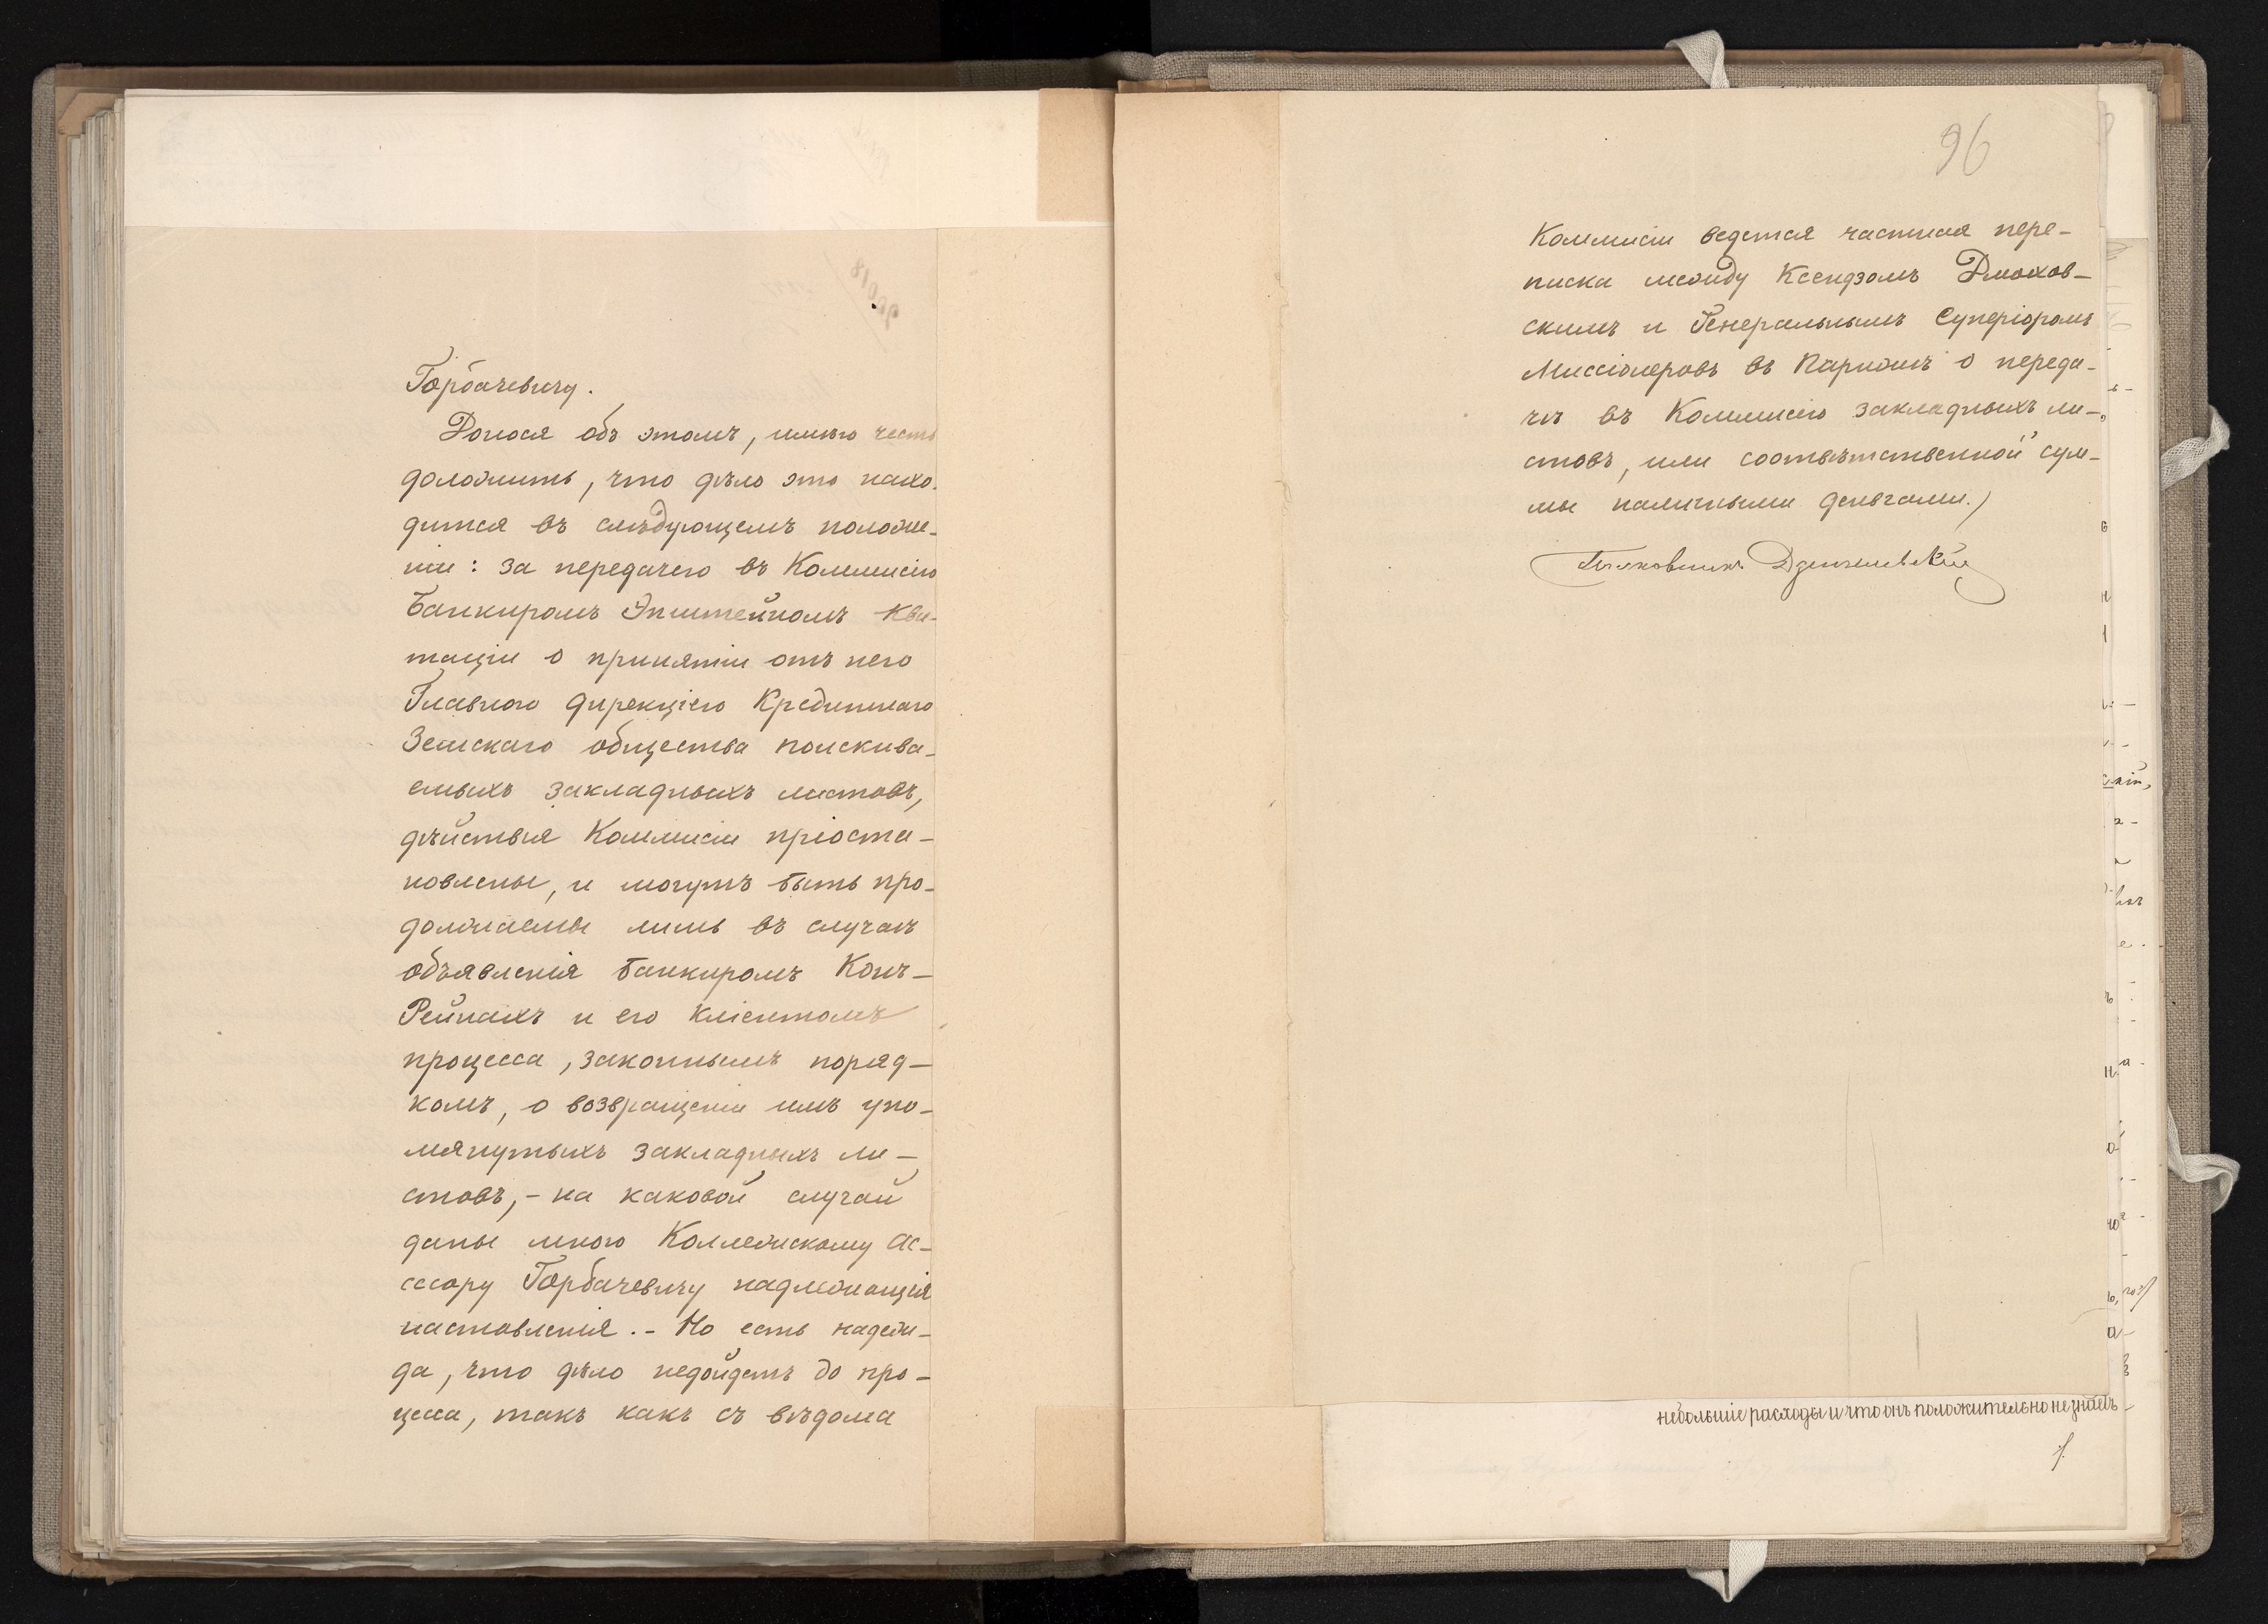 Горбачевичу.
Донося объ этомъ, имѣю честь
доложить, что дѣло это нахо-
дится въ слѣдующемъ положе-
ніи: за передачею въ Коммисію
Банкиромъ Эпштейномъ кви-
танціи о принятіи отъ него
Главною Дирекціею Кредитнаго
Земскаго общества поискива-
емыхъ закладныхъ листовъ,
дѣйствія Коммисіи пріоста-
новлены, и могутъ быть про-
должаемы лишь въ случаѣ
объявленія Банкиромъ Конъ-
Рейнахъ и его клiентомъ
процесса, законнымъ поряд-
комъ, о возвращеніи имъ упо-
мянутыхъ закладныхъ ли-
стовъ, - на каковой случай
даны мною Коллежскому Ас-
сесору Горбачевичу надлежащія
наставленія. - Но есть надеж-
да, что дѣло недойдетъ до про-
цесса, такъ какъ съ вѣдома
96
Коммисіи ведется частная пере-
писка между Ксендзомъ Дмохов-
скимъ и Генеральнымъ Суперіоромъ
Миссіонеровъ въ Парижѣ о переда-
чѣ въ Коммисію закладныхъ ли-
стовъ, или соотвѣтственной сум-
мы наличными деньгами.)
Полковникъ
небольшіе расходы и что онъ положительно не знаетъ